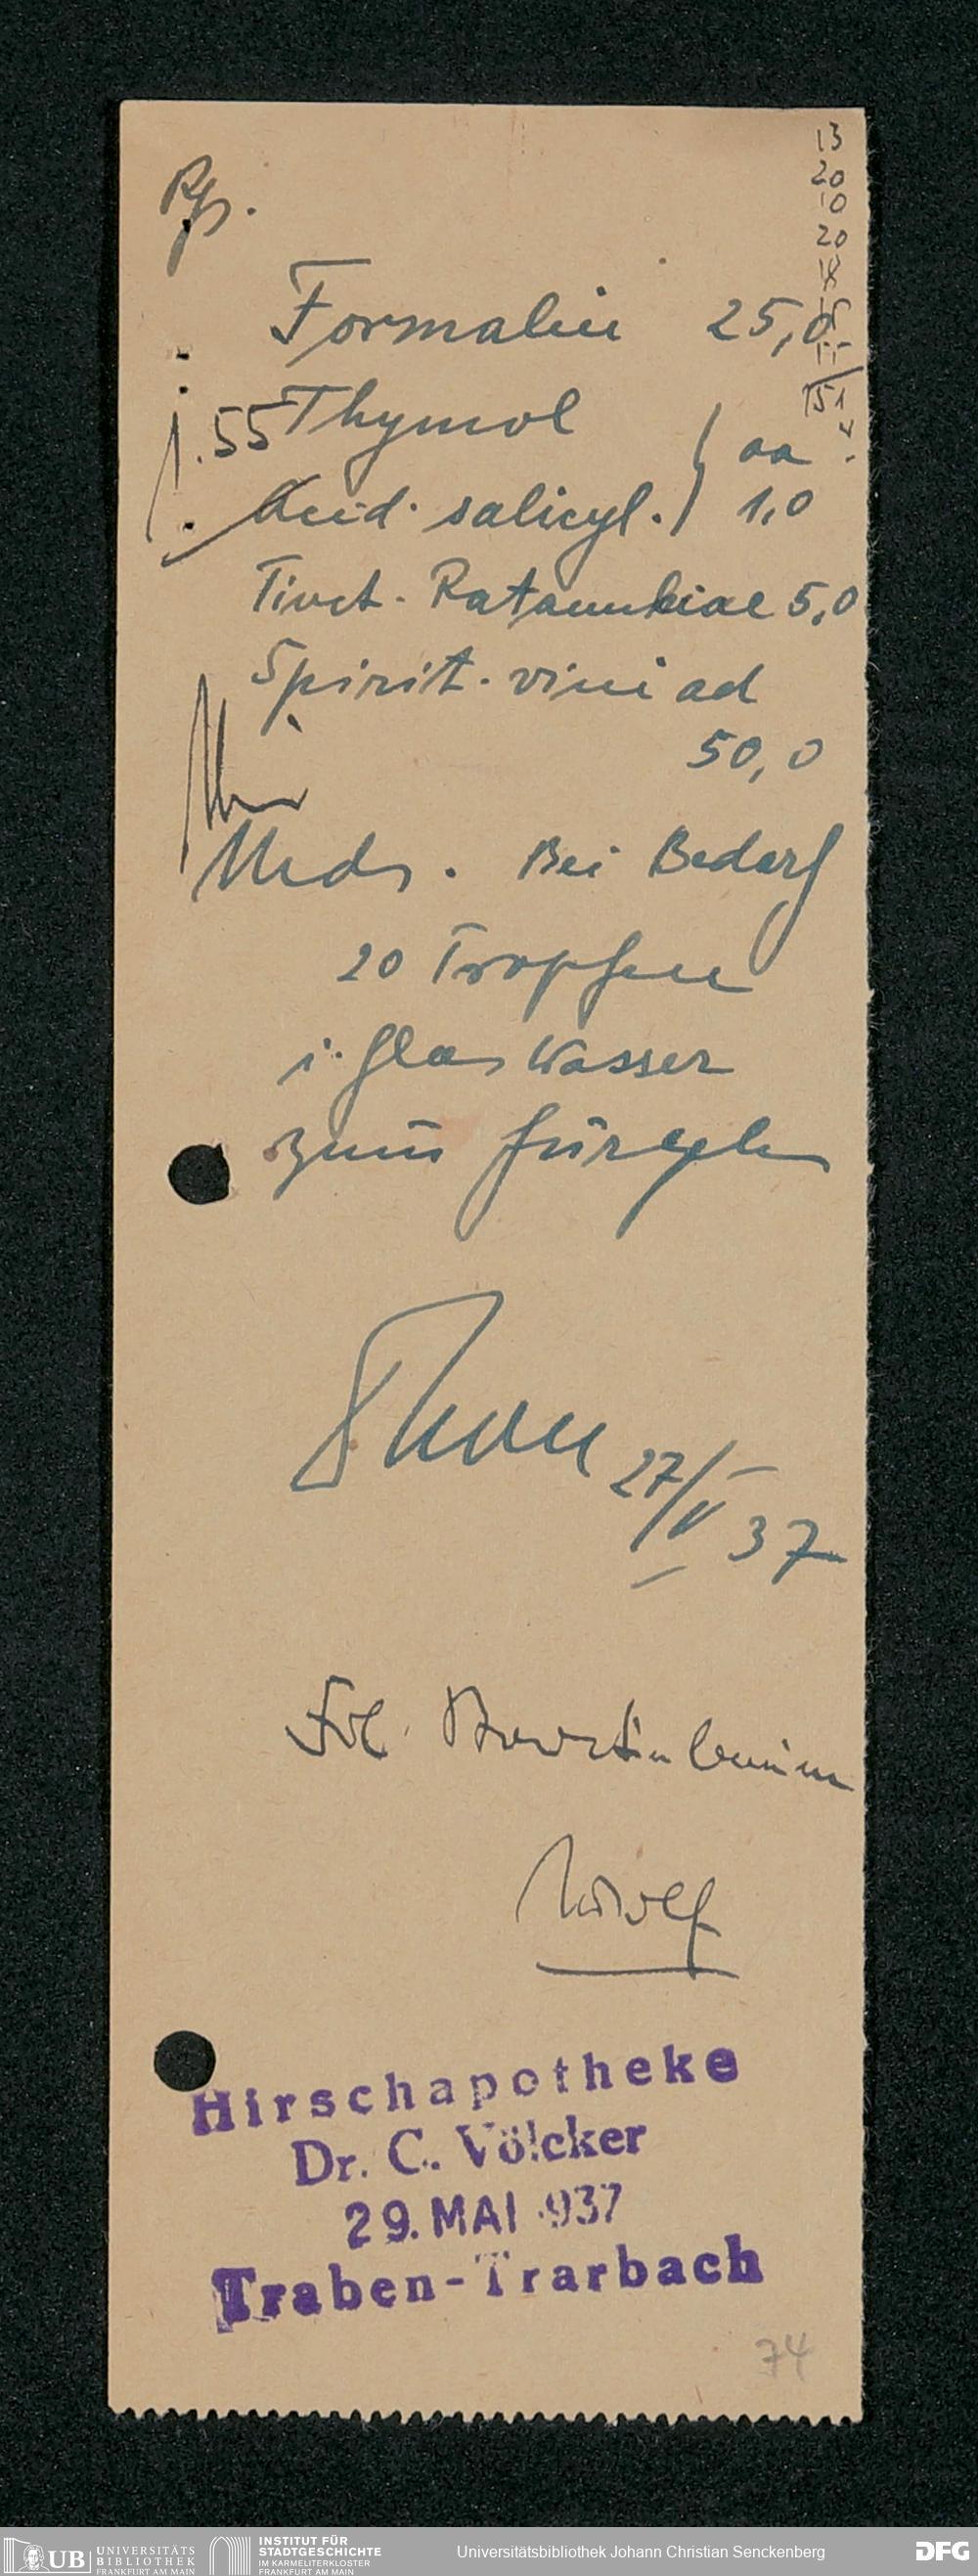 Rp.
13
20
10
20
18
15
55
151
Formalin 25,0
1.55
Thymol } aa
Acid. salicyl. } 1,0
Tinct. Ratanhiae 5,0
Spirit. vini ad
50,0
Mds. Bei Bedarf
20 Tropfen
i. Glas Wasser
zum Gurgeln
27/V 37
Frl.
Wolf
Hirschapotheke
Dr. C. Völcker
29. MAI 937
Traben-Trarbach
74
UB UNIVERSITÄTS
BIBLIOTHEK
FRANKFURT AM MAIN
INSTITUT FÜR
STADTGESCHICHTE
IM KARMELITERKLOSTER
FRANKFURT AM MAIN
Universitätsbibliothek Johann Christian Senckenberg
DFG